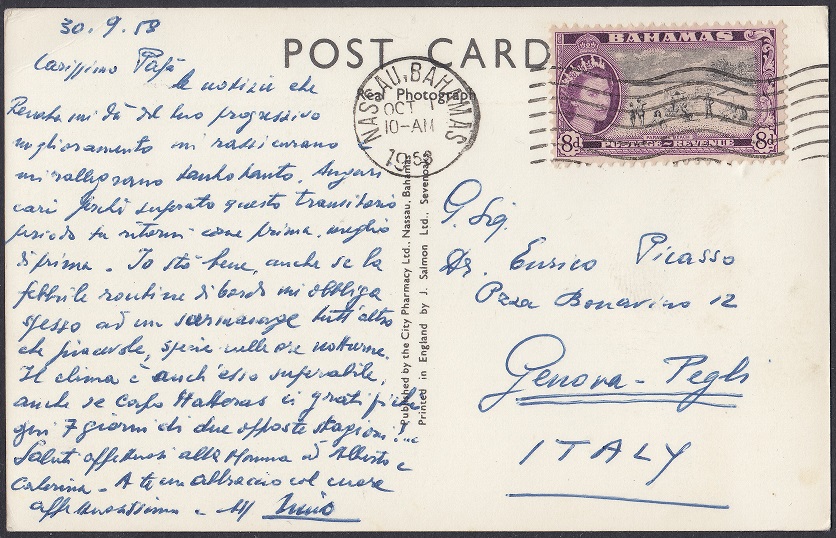 30.9.58
Carissimo Papà
le notizie che
Renata mi dà del tuo progressivo
miglioramento mi rassicurano e
mi rallegrano tanto tanto. Auguri
cari perchè superato questo transitorio
periodo tu ritorni come prima, meglio
di prima. Io stò bene, anche se la
febbrile routine di bordo mi obbliga
spesso ad un tutt'altro
che piacevole, specie nelle ore notturne.
Il clima è anch'esso superabile,
anche se Capo Hatteras ci gratifichi
ogni 7 giorni di due opposte stagioni!...
Saluti affettuosi alla Mamma ad Alberto e
Caterina. A te un abbraccio col cuore
affettuosissimo.
POST CARD
Real Photograph
NASSAU, BAHAMAS
OCT 1
10-AM
1958
BAHAMAS
8d
POSTAGE & REVENUE
8d
Published by the City Pharmacy Ltd., Nassau, Bahamas
Printed in England by J. Salmon Ltd., Sevenoaks
G. Sig.
Dr. Enrico Picasso
Pzza Bonavino 12
Genova - Pegli
ITALY